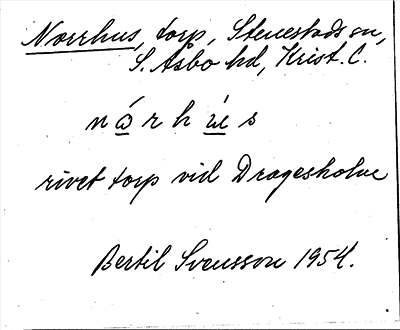 Norrhus, torp, Stenestads sn,
S. Åsbo hd, Krist. l.
rivet torp vid Dragesholm
Bertil Svensson 1954.